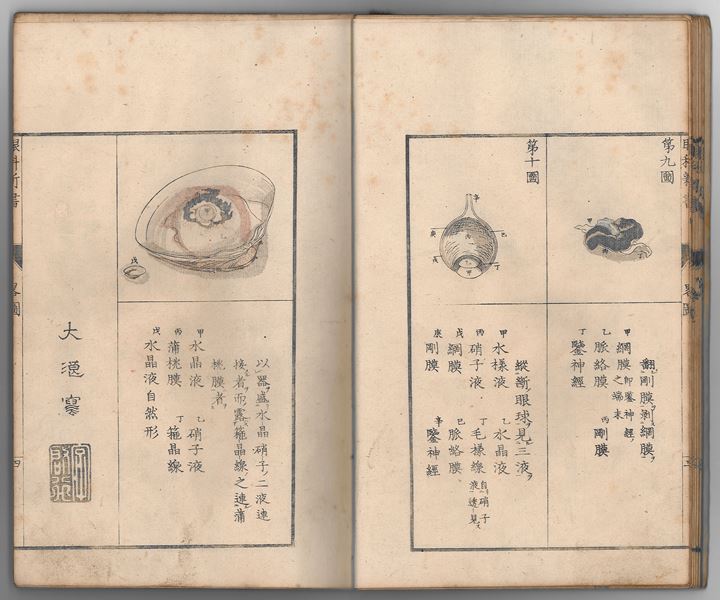 眼科新書
第九圖
翻剛膜剥網膜
甲網膜即鑒神經之端末
乙脈絡膜 丙剛膜
丁鑒神經
第十圖
辛
庚 己
戊 丁
縱斷眼球見三液
甲水樣液 乙水晶液
丙硝子液 丁毛樣線自硝子液透見
戊網膜 己脈絡膜
庚剛膜 辛鑒神經
戊
以器盛水晶硝子二液連
接者而露箍晶線之連蒲
桃膜者
甲水晶液 乙硝子液
丙蒲桃膜 丁箍晶線
戊水晶液自然形
眼科新書
畧圖
四